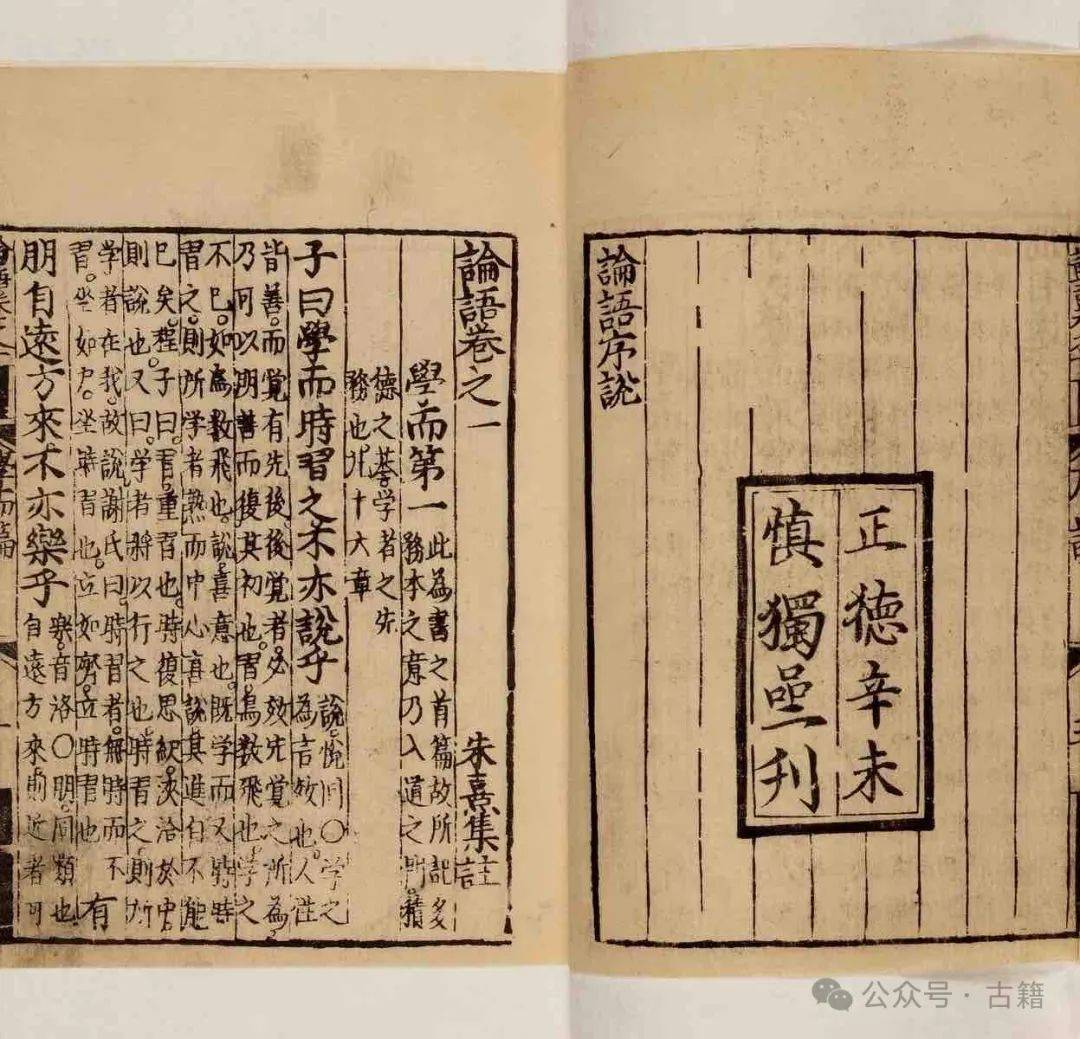 論語序說
正德辛未
慎獨亝刊
論語卷之一 朱熹集註
學而第一
此為書之首篇故所記多
務本之意乃入道之門積
德之基学者之先
務也凡十六章
子曰學而時習之不亦說乎
說悅同〇学之
為言效也。人性
皆善。而覺有先後。後覺者。必效先覺之所為。
乃可以明善而復其初也。習鳥數飛也。学之
不已。如鳥數飛也。說喜意也。既学而又時時
習之。則所学者熟而中心喜說。其進自不能
已矣。程子曰。習。重習也。時復思繹。浹洽於中。
則說也。又曰。学者將以行之也。時習之。則所
学者在我。故說。謝氏曰。時習者。無時而不
習。坐如尸。坐時習也。立如齊。立時習也
有
朋自遠方來不亦樂乎
樂。音洛〇朋。同類也
自遠方來。則近者可
公众号·古籍